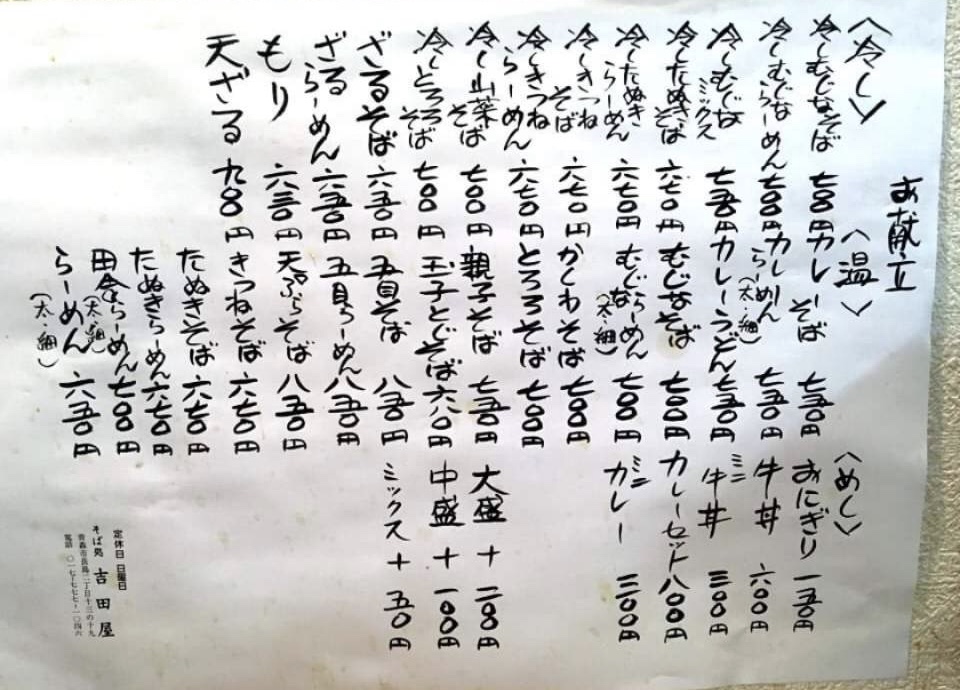 お献立
〈冷し〉
冷しむじなそば 七〇〇円
冷しむじならーめん 七〇〇円
冷しむじなミックス 七五〇円
冷したぬきそば 六七〇円
冷したぬきらーめん 六七〇円
冷しきつねそば 六七〇円
冷しきつねらーめん 六七〇円
冷し山菜そば 七〇〇円
冷しとろろそば 七〇〇円
ざるそば 六五〇円
ざるらーめん 六五〇円
もり 六三〇円
天ざる 九八〇円
〈温〉
カレーそば 七五〇円
カレーらーめん(太・細) 七五〇円
カレーうどん 七五〇円
むじなそば 七〇〇円
むじならーめん(太・細) 七〇〇円
かしわそば 七〇〇円
とろろそば 七〇〇円
親子そば 七五〇円
玉子とじそば 六八〇円
五目そば 八五〇円
五目らーめん 八五〇円
天ぷらそば 八五〇円
きつねそば 六七〇円
たぬきそば 六七〇円
たぬきらーめん 六七〇円
田舎らーめん(太・細) 七〇〇円
らーめん(太・細) 六五〇円
〈めし〉
おにぎり 一五〇円
牛丼 六〇〇円
ミニ牛丼 三〇〇円
カレーセット 八〇〇円
ミニカレー 三〇〇円
大盛 十 二〇〇円
中盛 十 一〇〇円
ミックス 十 五〇円
定休日 日曜日
そば処 吉田屋
青森市長島二丁目十三の十九
電話 〇一七-七七七-一〇四六